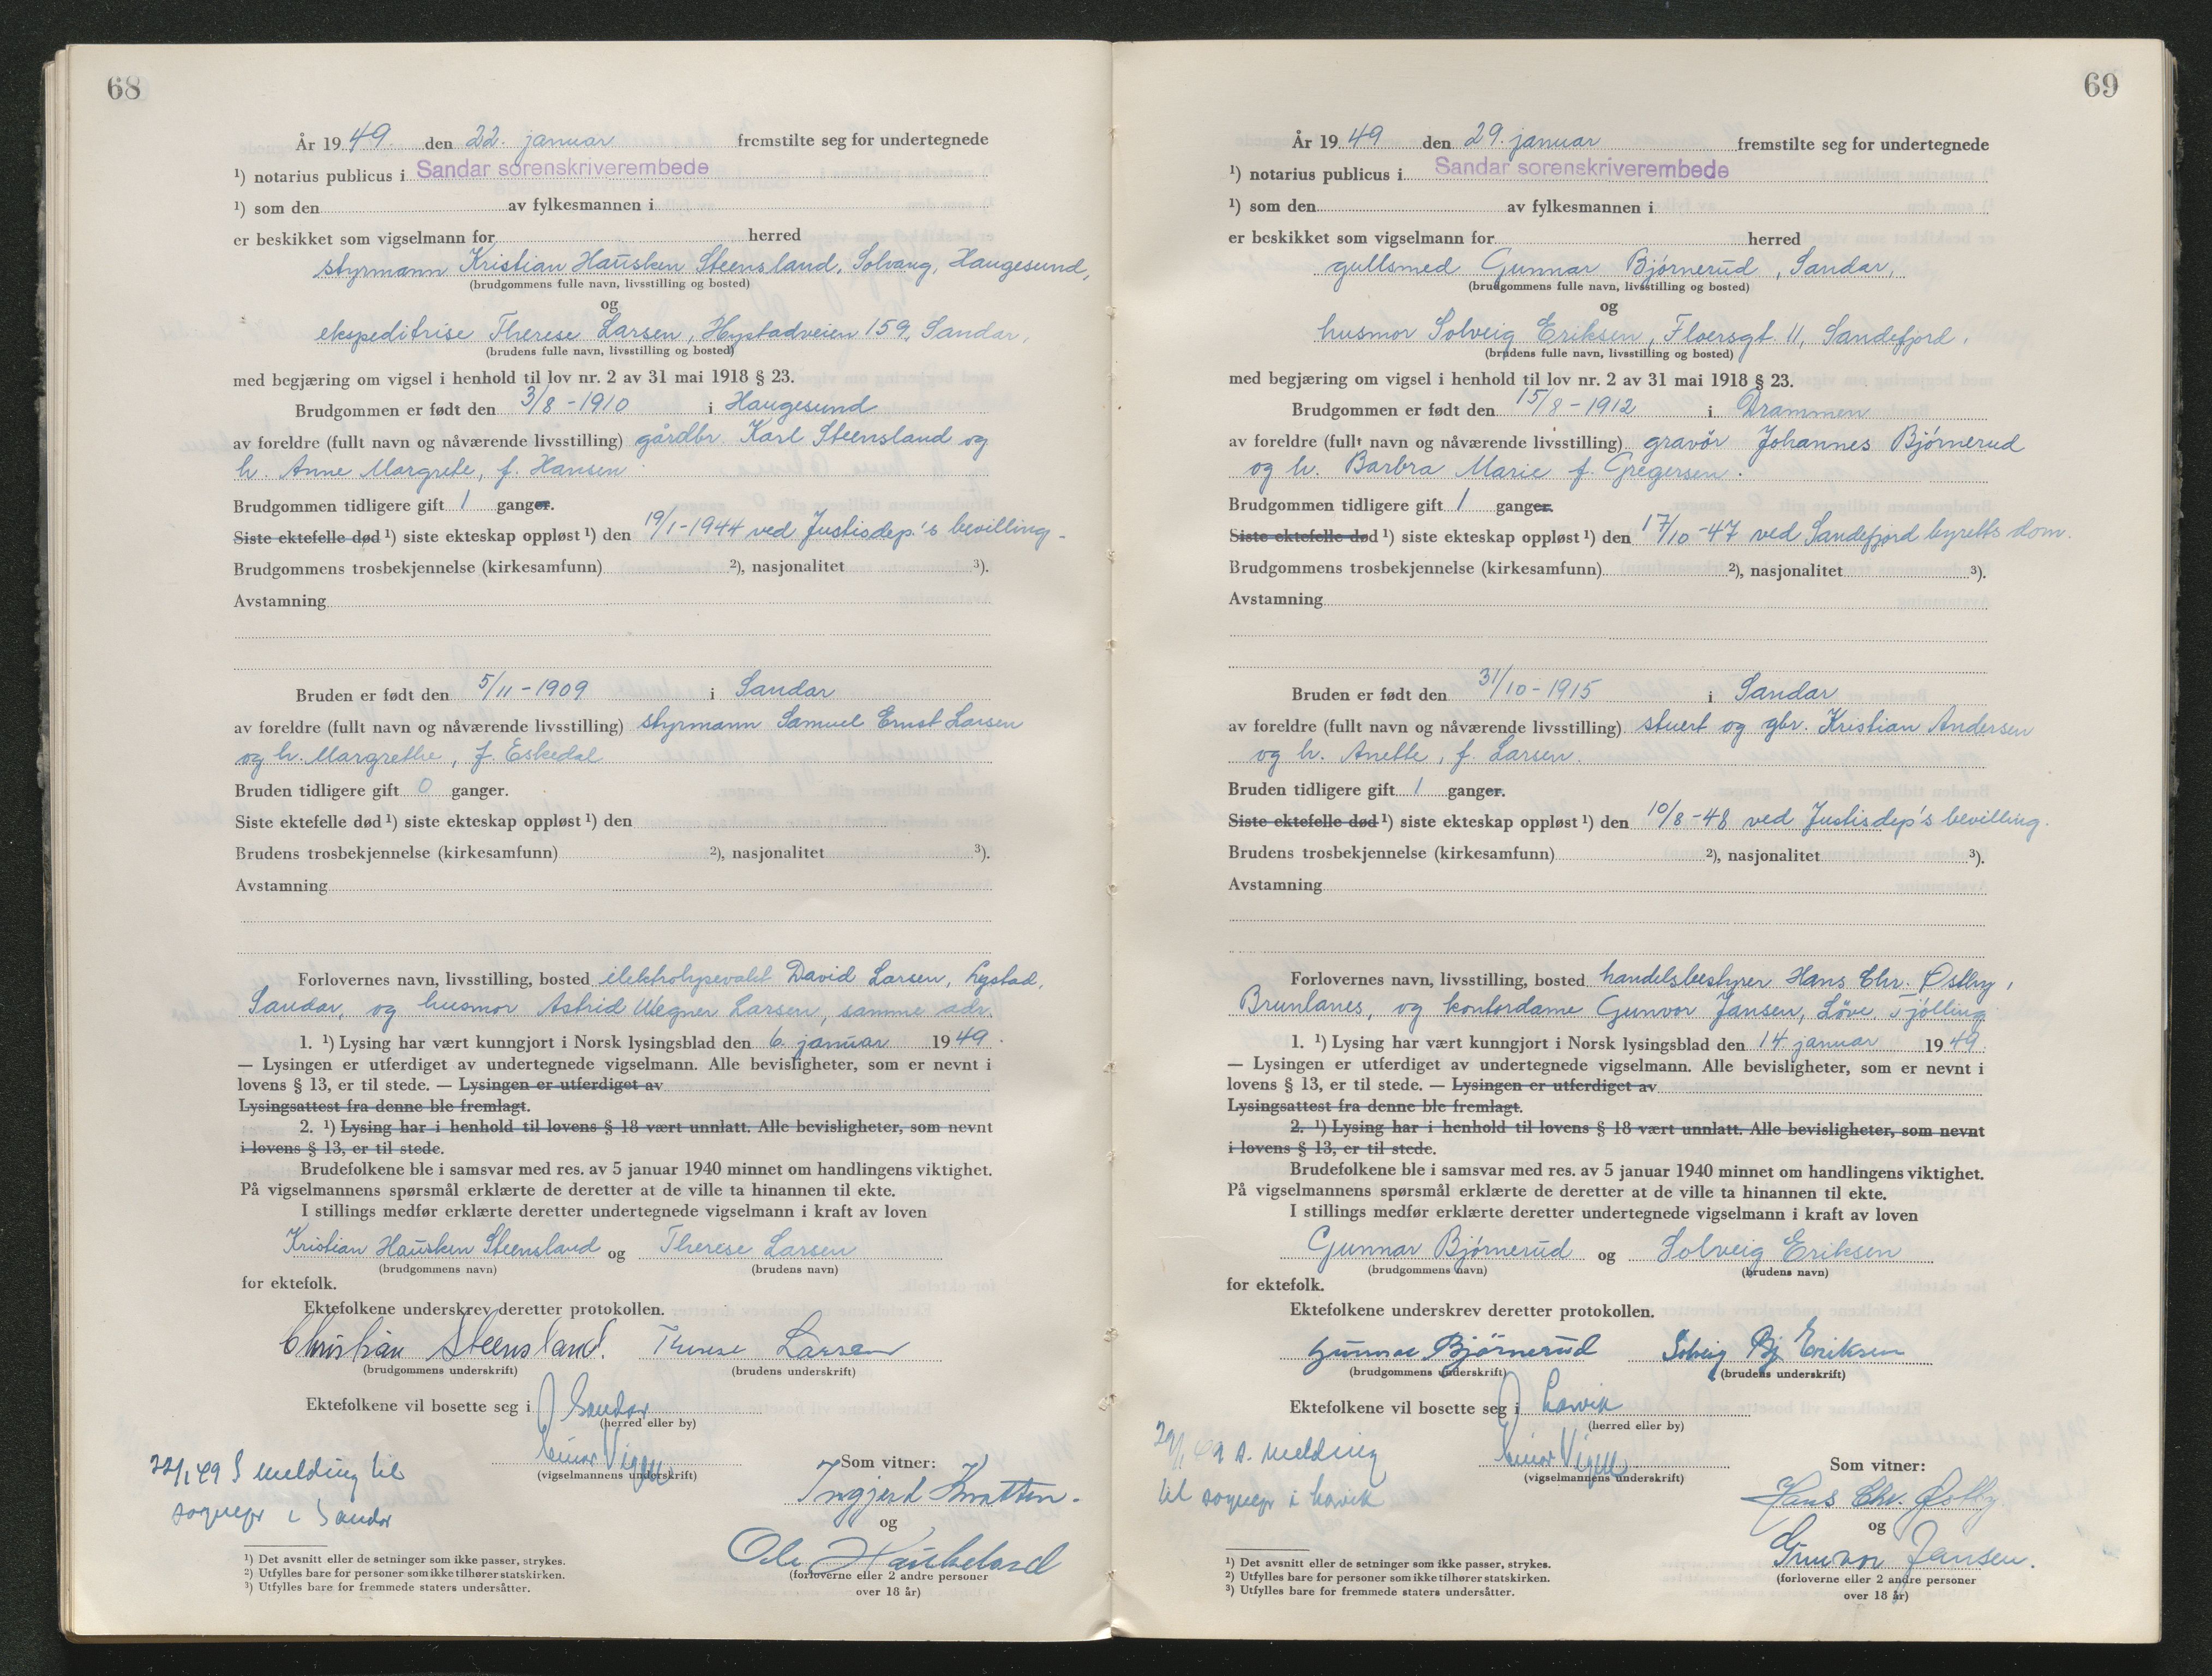 68
År 1949. den 22. januar fremstilte seg for undertegnede
¹) notarius publicus i Sandar sorenskriverembede
¹) som den av fylkesmannen i
er beskikket som vigselmann for herred
styrmann Kristian Hausken Steensland, Solvang, Haugesund,
(brudgommens fulle navn, livsstilling og bosted)
og
ekspeditrise Therese Larsen, Hystadveien 159, Sandar,
(brudens fulle navn, livsstilling og bosted)
med begjæring om vigsel i henhold til lov nr. 2 av 31 mai 1918 § 23.
Brudgommen er født den 3/8-1910 i Haugesund
av foreldre (fullt navn og nåværende livsstilling) gårdbr. Karl Steensland og
h. Anne Margrete, f. Hansen.
Brudgommen tidligere gift 1 ganger.
Siste ektefelle død ¹) siste ekteskap oppløst ¹) den 19/1-1944 ved Justisdep.'s bevilling.
Brudgommens trosbekjennelse (kirkesamfunn) ²), nasjonalitet ³).
Avstamning
Bruden er født den 5/11-1909 i Sandar
av foreldre (fullt navn og nåværende livsstilling) styrmann Samuel Ernst Larsen
og h. Margrethe, f. Eskedal
Bruden tidligere gift 0 ganger.
Siste ektefelle død ¹) siste ekteskap oppløst ¹) den
Brudens trosbekjennelse (kirkesamfunn) ²), nasjonalitet ³).
Avstamning
Forlovernes navn, livsstilling, bosted David Larsen, Hystad,
Sandar, og husmor Astrid Wegner Larsen, samme adr.
1. ¹) Lysing har vært kunngjort i Norsk lysingsblad den 6. januar 1949.
— Lysingen er utferdiget av undertegnede vigselmann. Alle bevisligheter, som er nevnt i
lovens § 13, er til stede. — Lysingen er utferdiget av
Lysingsattest fra denne ble fremlagt.
2. ¹) Lysing har i henhold til lovens § 18 vært unnlatt. Alle bevisligheter, som nevnt
i lovens § 13, er til stede.
Brudefolkene ble i samsvar med res. av 5 januar 1940 minnet om handlingens viktighet.
På vigselmannens spørsmål erklærte de deretter at de ville ta hinannen til ekte.
I stillings medfør erklærte deretter undertegnede vigselmann i kraft av loven
Kristian Hausken Steensland og Therese Larsen
(brudgommens navn) (brudens navn)
for ektefolk.
Ektefolkene underskrev deretter protokollen.
Christian Steensland. Therese Larsen
(brudgommens underskrift) (brudens underskrift)
Ektefolkene vil bosette seg i Sandar
(herred eller by)
Einar Vigen
(vigselmannens underskrift)
22/1 49 S melding til
sognepr i Sandar
Som vitner:
Ingjerd
og
Ole Haukeland
(forloverne eller 2 andre personer
over 18 år)
¹) Det avsnitt eller de setninger som ikke passer, strykes.
²) Utfylles bare for personer som ikke tilhører statskirken.
³) Utfylles bare for fremmede staters undersåtter.
69
År 1949 den 29. januar fremstilte seg for undertegnede
¹) notarius publicus i Sandar sorenskriverembede
¹) som den av fylkesmannen i
er beskikket som vigselmann for herred
gullsmed Gunnar Bjørnerud, Sandar,
(brudgommens fulle navn, livsstilling og bosted)
og
husmor Solveig Eriksen, Floersgt. 11, Sandefjord,
(brudens fulle navn, livsstilling og bosted)
med begjæring om vigsel i henhold til lov nr. 2 av 31 mai 1918 § 23.
Brudgommen er født den 15/8-1912 i Drammen
av foreldre (fullt navn og nåværende livsstilling) gravör Johannes Bjørnerud
og h. Barbra Marie f. Gregersen.
Brudgommen tidligere gift 1 ganger.
Siste ektefelle død ¹) siste ekteskap oppløst ¹) den 17/10-47 ved Sandefjord byretts dom.
Brudgommens trosbekjennelse (kirkesamfunn) ²), nasjonalitet ³).
Avstamning
Bruden er født den 31/10-1915 i Sandar
av foreldre (fullt navn og nåværende livsstilling) stuert og gbr. Kristian Andersen
og h. Anette, f. Larsen.
Bruden tidligere gift 1 ganger.
Siste ektefelle død ¹) siste ekteskap oppløst ¹) den 10/8-48 ved Justisdep's bevilling.
Brudens trosbekjennelse (kirkesamfunn) ²), nasjonalitet ³).
Avstamning
Forlovernes navn, livsstilling, bosted handelsbestyrer Hans Chr. Østby,
Brunlanes, og kontordame Gunvor Jansen, Löve, Tjölling
1. ¹) Lysing har vært kunngjort i Norsk lysingsblad den 14. januar 1949.
— Lysingen er utferdiget av undertegnede vigselmann. Alle bevisligheter, som er nevnt i
lovens § 13, er til stede. — Lysingen er utferdiget av
Lysingsattest fra denne ble fremlagt.
2. ¹) Lysing har i henhold til lovens § 18 vært unnlatt. Alle bevisligheter, som nevnt
i lovens § 13, er til stede.
Brudefolkene ble i samsvar med res. av 5 januar 1940 minnet om handlingens viktighet.
På vigselmannens spørsmål erklærte de deretter at de ville ta hinannen til ekte.
I stillings medfør erklærte deretter undertegnede vigselmann i kraft av loven
Gunnar Bjørnerud og Solveig Eriksen
(brudgommens navn) (brudens navn)
for ektefolk.
Ektefolkene underskrev deretter protokollen.
Gunnar Bjørnerud Solveig Bj Eriksen
(brudgommens underskrift) (brudens underskrift)
Ektefolkene vil bosette seg i Larvik
(herred eller by)
Einar Vigen
(vigselmannens underskrift)
29/1 49 s. melding
til sognepr i Larvik
Som vitner:
Hans Chr. Østby
og
Gunvor Jansen.
(forloverne eller 2 andre personer
over 18 år)
¹) Det avsnitt eller de setninger som ikke passer, strykes.
²) Utfylles bare for personer som ikke tilhører statskirken.
³) Utfylles bare for fremmede staters undersåtter.